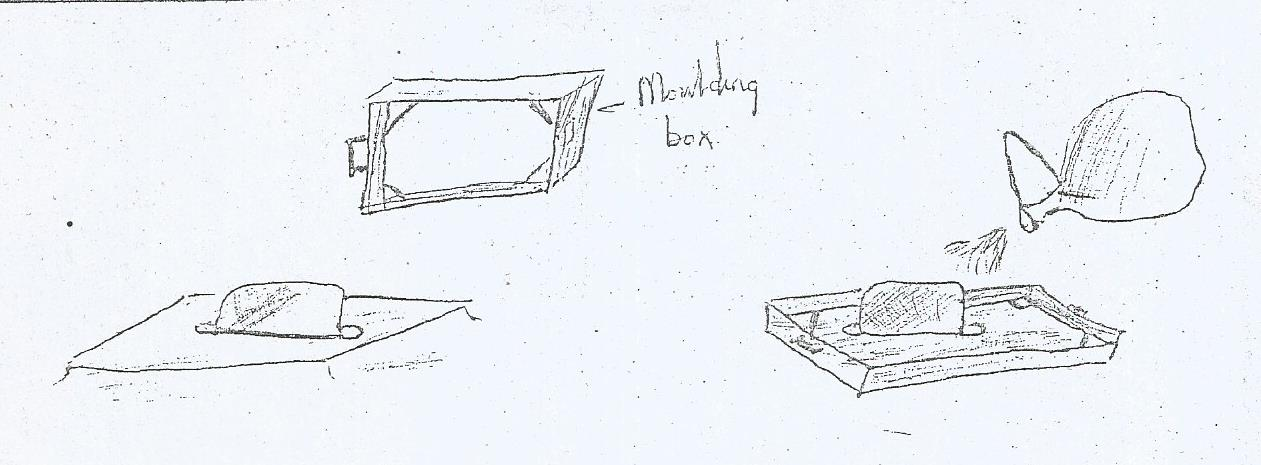 Moulding
box